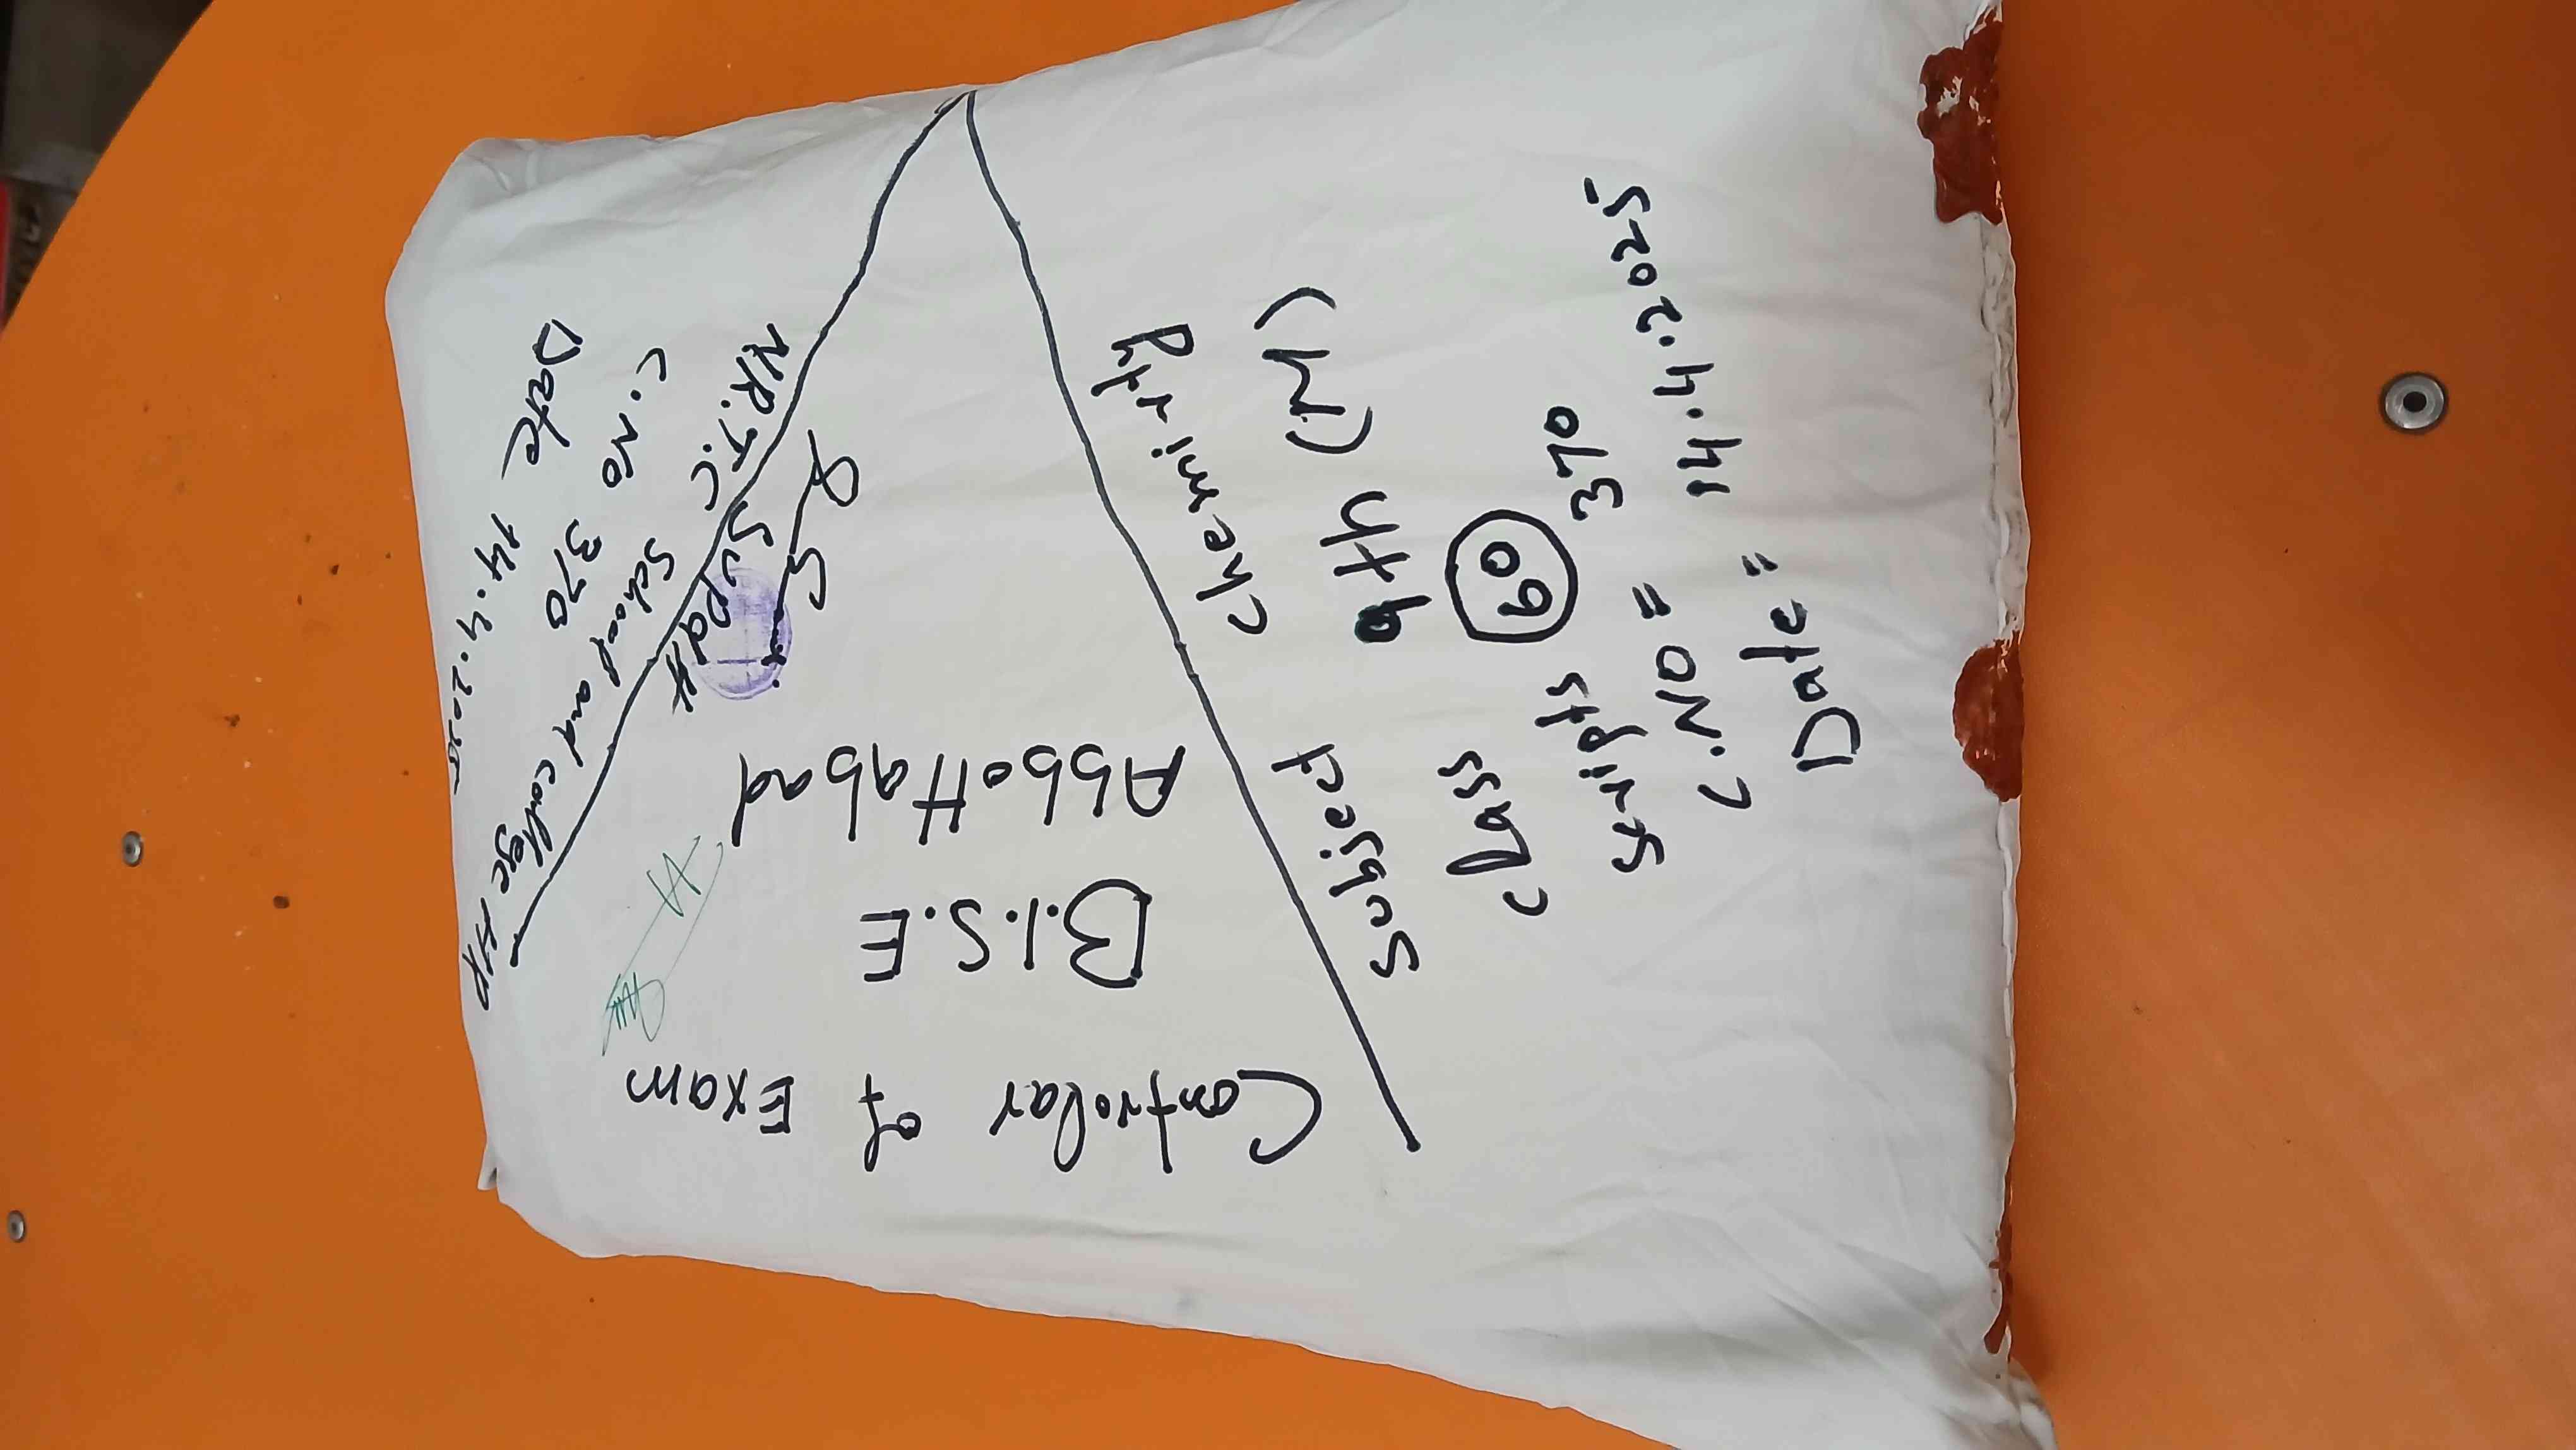 Controlar of Exam
B.I.S.E
AbboHabad
Subject Chemirty
class 9th (M)
Scripts 60
C.No = 370
Date = 14.4.2025
Supdtt
N.R.T.C School and college HR
C.No 370
Date 14.4.2025